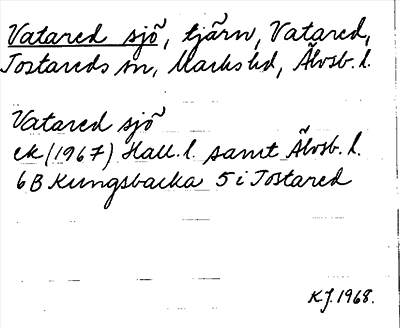 Vatared sjö, tjärn, Vatared,
Tostareds sn, Marks hd, Älvsb. l.
Vatared sjö
ek (1967) Hall. l. samt Älvsb. l.
6B Kungsbacka 5 i Tostared
K.J. 1968.